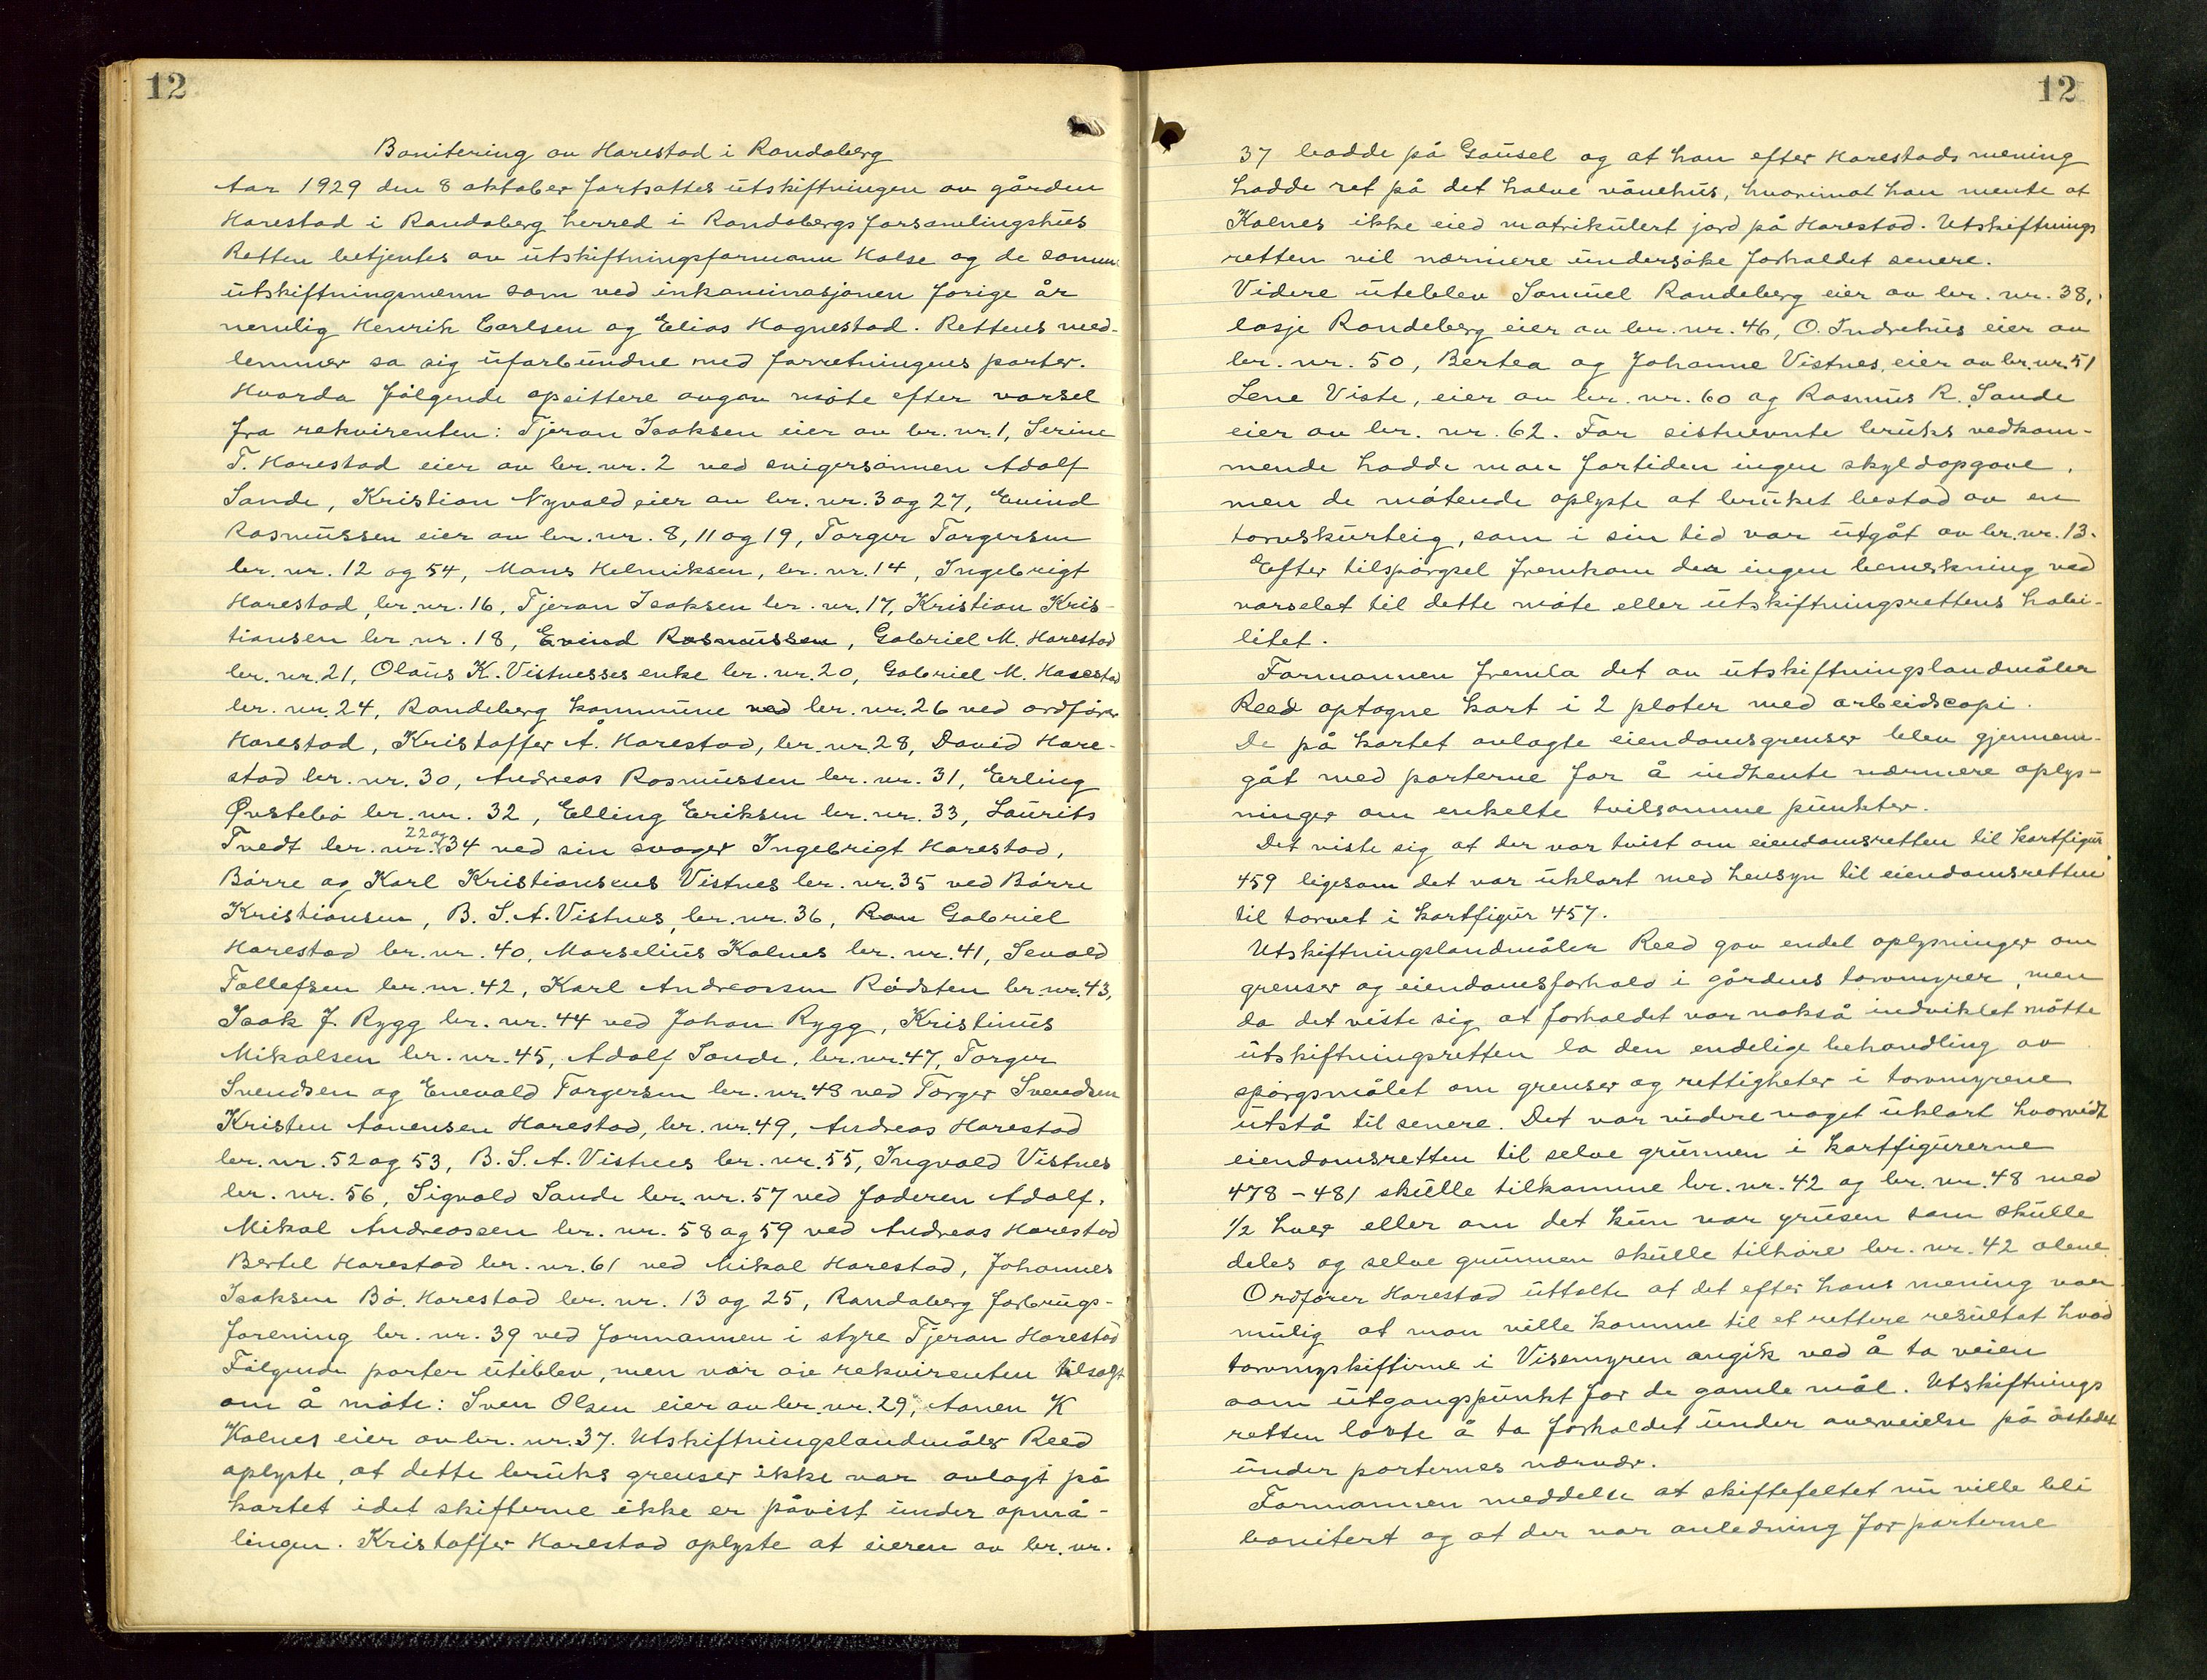 12
Bonitering av Harestad i Randaberg
Aar 1929 den 8 oktober fortsattes utskiftningen av gården
Harestad i Randaberg herred i Randabergs forsamlingshus
Retten betjentes av utskiftningsformann Holse og de samme
utskiftningsmenn som ved inkaminasjonen forige år
nemlig Henrik Carlsen og Elias Hognestad. Rettens med-
lemmer sa sig uforbundne med forretningens parter.
Hvorda følgende opsittere avgav møte efter varsel
fra rekvirenten: Tjeran Isaksen eier av br. nr. 1, Serine
T. Harestad eier av br. nr. 2 ved svigersønnen Adolf
Sande, Kristian Nyvold eier av br. nr. 3 og 27, Eivind
Rasmussen eier av br. nr. 8, 11 og 19, Torger Torgersen
br. nr. 12 og 54, Mons Helmiksen, br. nr. 14, Ingebrigt
Harestad br. nr. 16, Tjeran Isaksen br. nr. 17, Kristian Kris-
tiansen br. nr. 18, Eivind Rasmussen, Gabriel M. Harestad
br. nr. 21, Olaus K. Vistnesses enke br. nr. 20, Gabriel M. Harestad
br. nr. 24, Randeberg kommune ved br. nr. 26 ved ordfører
Harestad, Kristoffer Å. Harestad, br. nr. 28, David Hare-
stad br. nr. 30, Andreas Rasmussen br. nr. 31, Erling
Øvstebø br. nr. 32, Elling Eriksen br. nr. 33, Laurits
Tvedt br. nr. 22 og 34 ved sin svoger Ingebrigt Harestad,
Børre og Karl Kristiansens Vistnes br. nr. 35 ved Børre
Kristiansen, B. S. A. Vistnes, br. nr. 36, Ran Gabriel
Harestad br. nr. 40, Marselius Kalnes br. nr. 41, Sevald
Tollefsen br. nr. 42, Karl Andreassen Rødsten br. nr. 43,
Isak J. Rygg br. nr. 44 ved Johan Rygg, Kristinus
Mikalsen br. nr. 45, Adolf Sande, br. nr. 47, Torger
Svendsen og Enevald Torgersen br. nr. 48 ved Torger Svendsen
Kristen Aanensen Harestad, br. nr. 49, Andreas Harestad
br. nr. 52 og 53, B. S. A. Vistnes br. nr. 55, Ingvald Vistnes
br. nr. 56, Sigvald Sande br. nr. 57 ved faderen Adolf.
Mikal Andreassen br. nr. 58 og 59 ved Andreas Harestad
Bertel Harestad br. nr. 61 ved Mikal Harestad, Johannes
Isaksen Bø. Harestad br. nr. 13 og 25, Randaberg forbrugs-
forening br. nr. 39 ved formannen i styre Tjeran Harestad
Følgende parter uteblev, men var av rekvirenten tilsagt
om å møte: Sven Olsen eier av br. nr. 29, Aanen K
Kalnes eier av br. nr. 37. Utskiftningslandmåler Reed
oplyste, at dette bruks grenser ikke var avlagt på
kartet idet skifterne ikke er påvist under opmå-
lingen. Kristoffer Harestad oplyste at eieren av br. nr.
12
37 bodde på Gausel og at han efter Harestads mening
hadde ret på det halve vånehus, hvorimot han mente at
Kalnes ikke eied matrikulert jord på Harestad. Utskiftnings
retten vil nærmere undersøke forholdet senere.
Videre uteblev Samuel Randeberg eier av br. nr. 38,
losje Randeberg eier av br. nr. 46, O. Indrehus eier av
br. nr. 50, Bertea og Johanne Vistnes, eier av br. nr. 51
Lene Viste, eier av br. nr. 60 og Rasmus R. Sande
eier av br. nr. 62. For sistnevnte bruks vedkom-
mende hadde man fortiden ingen skyldopgave,
men de møtende oplyste at bruket bestod av en
torvskurteig, som i sin tid var utgåt av br. nr. 13.
Efter tilspørgsel fremkom der ingen bemerkning ved
varselet til dette møte eller utskiftningsrettens habi-
litet.
Formannen fremla det av utskiftningslandmåler
Reed optagne kart i 2 plater med arbeidscopi.
De på kartet avlagte eiendomsgrenser blev gjennem-
gåt med parterne for å indhente nærmere oplys-
ninger om enkelte tvilsomme punkter.
Det viste sig at der var tvist om eiendomsretten til kartfigur
459 ligesom det var uklart med hensyn til eiendomsretten
til torvet i kartfigur 457.
Utskiftningslandmåler Reed gav endel oplysninger om
grenser og eiendomsforhold i gårdens torvmyrer, men
da det viste sig at forholdet var nokså indviklet måtte
utskiftningsretten la den endelige behandling av
spørgsmålet om grenser og rettigheter i torvmyrene
utstå til senere. Det var videre noget uklart hvorvidt
eiendomsretten til selve grunnen i kartfigurerne
478 - 481 skulle tilkomme br. nr. 42 og br. nr. 48 med
1/2 hver eller om det kun var grusen som skulle
deles og selve grunnen skulle tilhøre br. nr. 42 alene.
Ordfører Harestad uttalte at det efter hans mening var
mulig at man ville komme til et rettere resultat hvad
torvmyskifterne i Visemyren angik ved å ta veien
som utgangspunkt for de gamle mål. Utskiftnings
retten lovte å ta forholdet under overveielse på åstedet
under parternes nærvær.
Formannen meddelte at skiftefeltet nu ville bli
bonitert og at der var anledning for parterne